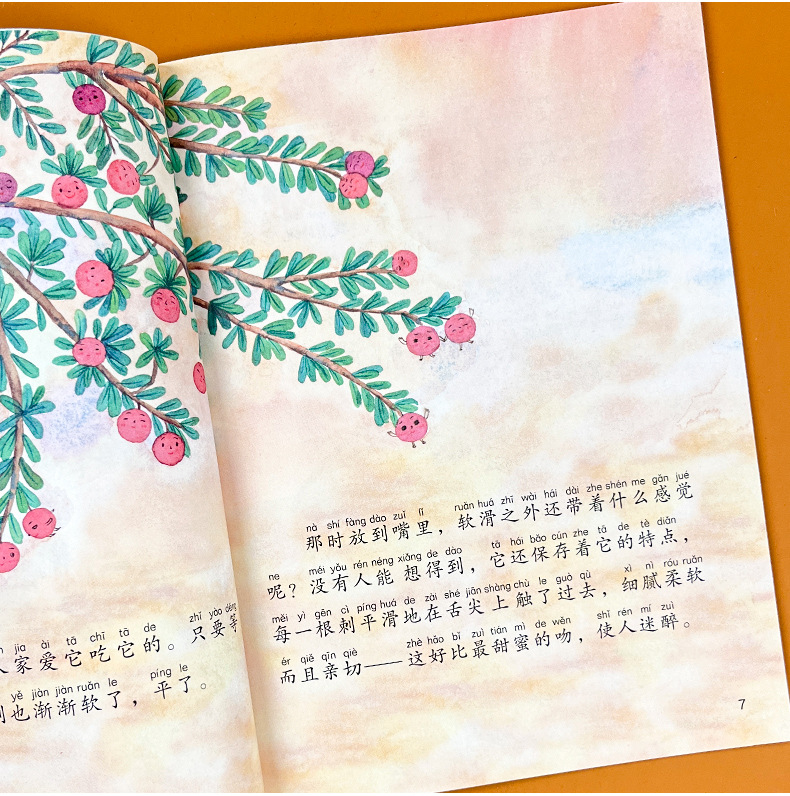 jiā ài tā chī tā de zhǐ yào děng
人家爱它吃它的。只要等
yě jiàn jiàn ruǎn le píng le
刺也渐渐软了，平了。
nà shí fàng dào zuǐ lǐ ruǎn huá zhī wài hái dài zhe shén me gǎn jué
那时放到嘴里，软滑之外还带着什么感觉
ne méi yǒu rén néng xiǎng de dào tā hái bǎo cún zhe tā de tè diǎn
呢？没有人能 想得到，它还保存着它的特点，
měi yì gēn cì píng huá de zài shé jiān shàng chù le guò qù xì nì róu ruǎn
每一根刺平滑地在舌尖上触了过去，细腻柔软
ér qiě qīn qiè zhè hǎo bǐ zuì tián mì de wěn shǐ rén mí zuì
而且亲切——这好比最甜蜜的吻，使人迷醉。
7